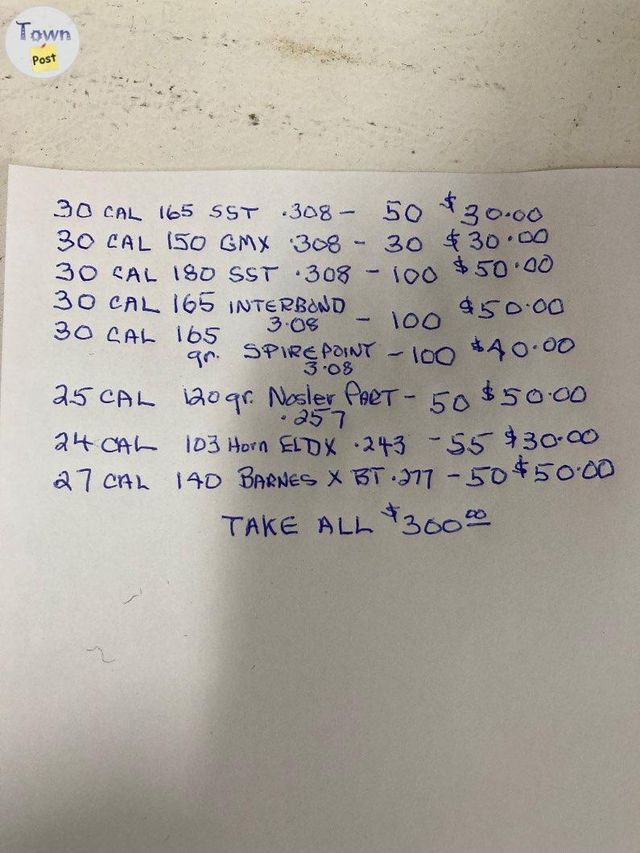 Town
Post
30 CAL 165 SST .308 - 50 $30.00
30 CAL 150 GMX .308 - 30 $30.00
30 CAL 180 SST .308 - 100 $50.00
30 CAL 165 INTERBOND
3.08 - 100 $50.00
30 CAL 165
gr. SPIREPOINT - 100 $40.00
3.08
25 CAL 120 gr. Nosler PART - 50 $50.00
.257
24 CAL 103 Horn ELDX .243 - 55 $30.00
27 CAL 140 BARNES X BT .277 - 50 $50.00
TAKE ALL $300.00